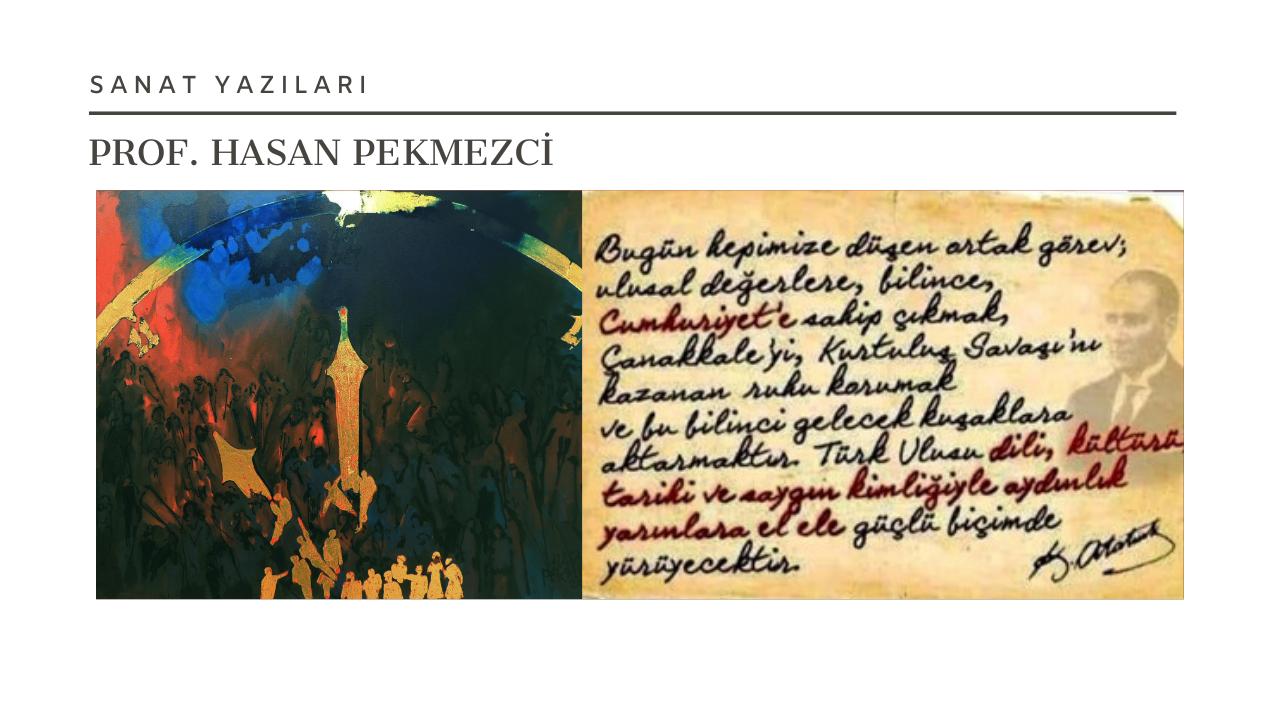 SANAT YAZILARI
PROF. HASAN PEKMEZCİ
Bugün hepimize düşen ortak görev;
ulusal değerlere, bilince,
Cumhuriyet'e sahip çıkmak,
Çanakkale'yi, Kurtuluş Savaşı'nı
kazanan ruhu korumak
ve bu bilinci gelecek kuşaklara
aktarmaktır. Türk Ulusu dili, kültürü,
tarihi ve saygın kimliğiyle aydınlık
yarınlara el ele güçlü biçimde
yürüyecektir.
K. Atatürk